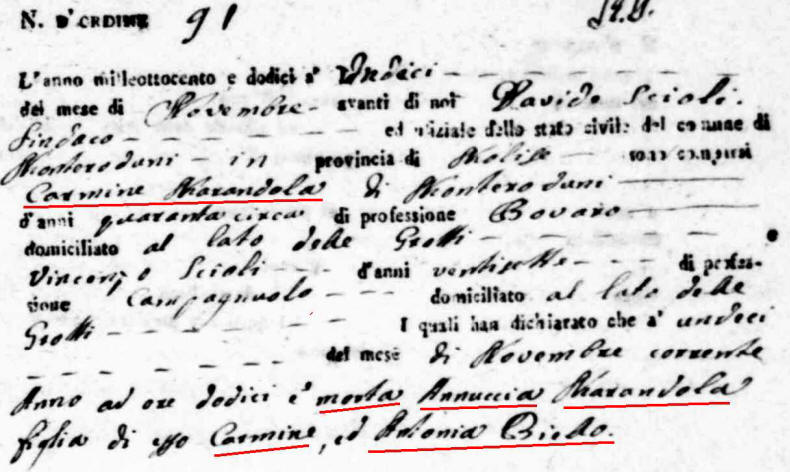 N. D'ORDINE 91
L'anno mil'eottocento e dodici a' Undici
del mese di Novembre avanti di noi Davide Scioli.
Sindaco ed uffiziale dello stato civile del comune di
Monteroduni in provincia di Molise sono comparsi
Carmine Marandola di Monteroduni
d'anni quaranta circa di professione Bovaro
domiciliato al lato delle Grotti
Vincenzo Scioli d'anni ventisette di profes-
sione Campagnuolo domiciliato al lato delle
Grotti I quali han dichiarato che a' undeci
del mese di Novembre corrente
Anno ad ore dodici è morta Annuccia Marandola
figlia di esso Carmine, ed Antonia Biello.